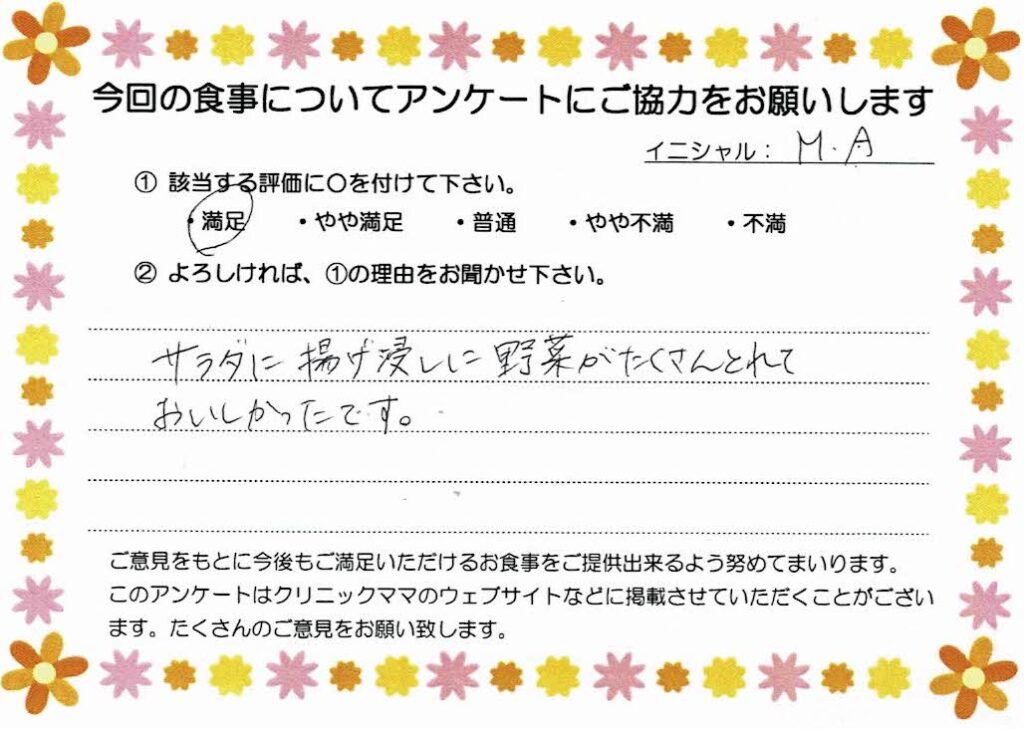 今回の食事についてアンケートにご協力をお願いします
イニシャル： M.A
① 該当する評価に〇を付けて下さい。
・満足 ・やや満足 ・普通 ・やや不満 ・不満
② よろしければ、①の理由をお聞かせ下さい。
サラダに揚げ浸しに野菜がたくさんとれて
おいしかったです。
ご意見をもとに今後もご満足いただけるお食事をご提供出来るよう努めてまいります。
このアンケートはクリニックママのウェブサイトなどに掲載させていただくことがござい
ます。たくさんのご意見をお願い致します。